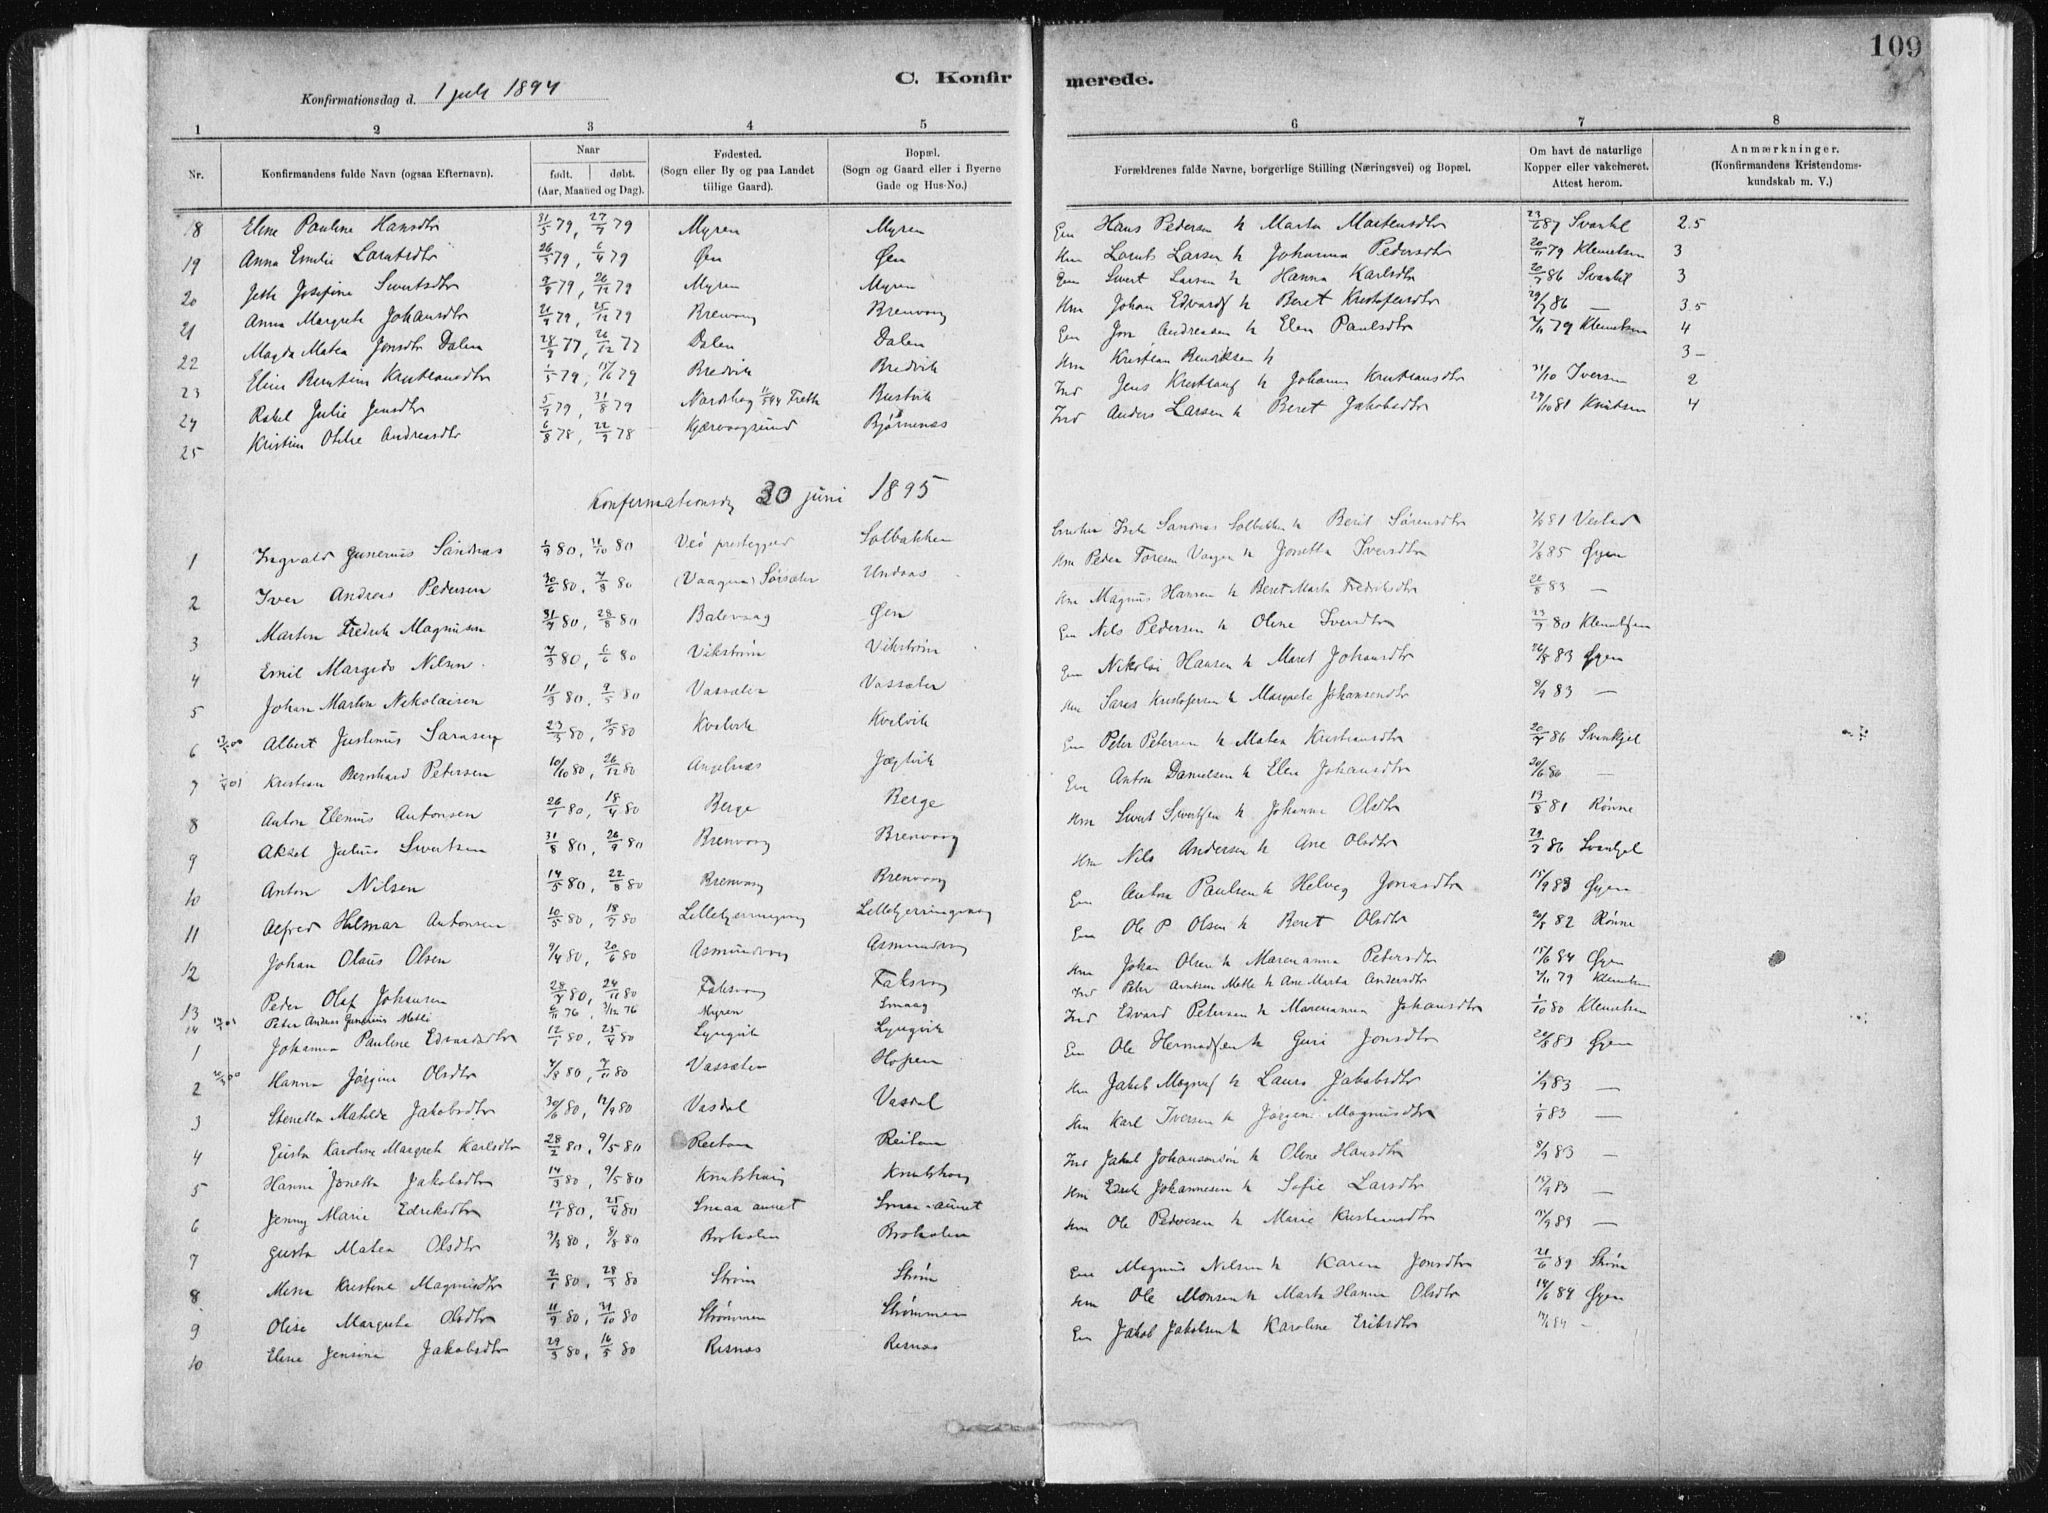 109
C. Konfirmerede.
Konfirmationsdag d. 1 juli 1894
1 2 3 4 5 6 7 8
Nr.
Konfirmandens fulde Navn (ogsaa Efternavn).
Naar født. døbt. (Aar, Maaned og Dag).
Fødested. (Sogn eller By og paa Landet tillige Gaard).
Bopæl. (Sogn og Gaard eller i Byerne Gade og Hus-No.)
Forældrenes fulde Navne, borgerlige Stilling (Næringsvei) og Bopæl.
Om havt de naturlige Kopper eller vakcineret. Attest herom.
Anmærkninger. (Konfirmandens Kristendomskundskab m. V.)
18 Eline Pauline Hansdtr 31/5 79, 27/7 79 Myren Myren Em Hans Pedersen h Marta Martensdtr 23/6 87 2.5
19 Anna Emelie Larntsdtr 26/3 79, 6/4 79 Øen Øen Hm Larnts Larsen h Johanna Pedersdtr 20/11 79 Klemetsen 3
20 Josefine Sivertsdtr 79, 26/12 79 Myren Myren Em Sivert Larsen h Hanna Karlsdtr 86 3
21 Anna Margrete Johansdtr 21/9 79, 25/12 79 Brenvag Brenvag Hm Johan Edvards h Beret Kristofersdtr 29/7 86 — 3.5
22 Magda Matea Jonsdtr Dalen 28/9 77, 26/12 77 Dalen Dalen Em Jon Andreasen h Elen Paulsdtr 79 Klemetsen 4
23 Eline Berntine Kristiansdtr 1/5 79, 15/6 79 Bredvik Bredvik Hm Kristian Henriksen h 3 —
24 Rakel Julie Jensdtr 79, 31/8 79 Nordshag Bustvik Ind Jens Kristians h Johanna Kristiansdtr 31/10 Iversen 2
25 Kristine Otilie Andreasdtr 6/8 78, 22/9 78 Bjørnenes Ind Anders Larsen h Beret Jakobsdtr 29/10 81 Knutsen 4
Konfirmationsdag 30 juni 1895
1 Ingvald Gunerius Sandnas 1/9 80, 21/10 80 Veø prestegjeld Solbakken Sandnas Solbakken h Berit Sørensdtr 81 Vestad
2 Iver Andreas Pedersen 30/6 80, 80 (Vaagen) Sørsæter Undaas Hm Peder Toresen Vagen h Jonetta Iversdtr 85 Øyen
3 Martin Fredrik Magnusen 31/7 80, 28/8 80 Balevaag Øen Hm Magnus Hansen h Beret Marta Fredriksdtr 83 —
4 Emil Margido Nilsen 80, 6/6 80 Vikstrøm Vikstrøm Em Nils Pedersen h Oline Iversdtr 80 Klemetsen
5 Johan Martin Nikolaisen 11/3 80, 9/5 80 Vassæter Vassæter Em Nikolai Hansen h Maret Johansdtr 26/8 83 Øyen
6 Albert Justinus Sarasen 23/3 80, 80 Kvelvik Kvelvik Hm Saras Kristofersen h Margrete Johansendtr 83 —
7 Kristian Bernhard Petersen 10/10 80, 26/12 80 Angelnes Jægtvik Em Peter Petersen h Matea Kristiansdtr 86 Svankjel
8 Anton Elenius Antonsen 26/1 80, 18/4 80 Berge Berge Em Anton Danielsen h Elen Johansdtr 80 —
9 Aksel Julius Sivertsen 31/8 80, 26/9 80 Brenvag Brenvaag Hm Sivert Sivertsen h Johanna Olsdtr 19/8 81 Rønne
10 Anton Nilsen 14/5 80, 22/8 80 Brenvag Brenvaag Hm Nils Andersen h Ane Olsdtr 86 Svankjel
11 Alfred Hilmar Antonsen 10/5 80, 18/7 80 Lillekjerringvaag Lillekjerringvaag Em Anton Paulsen h Helveg Jonasdtr 15/9 83 Øyen
12 Johan Olaus Olsen 9/4 80, 20/6 80 Asmundvag Asmundvag Em Ole P Olsen h Beret Olsdtr 82 Rønne
13 Peder Olaf Johansen 28/7 80, 24/11 80 Faksvag Faksvag Hm Johan Olsen h Marenanna Petersdtr 15/6 84 Øyen
14 Peter Andreas Gunerius Metli 76, 3/12 76 Myren Smaag Ind Peter Arntsen Metli h Ane Marta Andersdtr 79 Klemetsen
1 Johanna Pauline Edvardsdtr 12/1 80, 25/4 80 Lyngvik Lyngvik Ind Edvard Petersen h Marenanna Johansdtr 1/10 80 Klemetsen
2 Hanna Jørgine Olsdtr 80, 80 Vassæter Hopen Em Ole Hermodsen h Guri Jonsdtr 83 Øyen
3 Stenetta Matilde Jakobsdtr 30/6 80, 12/9 80 Vasdal Vasdal Hm Jakob Magnus h Laura Jakobsdtr 1/9 83 —
4 Gusta Karoline Margrete Karlsdtr 28/2 80, 9/5 80 Reitan Reitan Hm Karl Iversen h Jørgen Magnusdtr 1/9 83 —
5 Hanna Jonetta Jakobsdtr 14/3 80, 9/5 80 Knutshaug Knutshaug Ind Jakob Johansen h Oline Hansdtr 8/9 83 —
6 Jenny Marie Edriksdtr 80, 25/4 80 Smaa aunet Smaa-aunet Hm Edrik Johannesen h Sofie Larsdtr 83 —
7 Gusta Matea Olsdtr 3/3 80, 8/8 80 Brokolen Brokolen Hm Ole Pedersen h Marie Kristiansdtr 83 —
8 Mina Kristine Magnusdtr 2/1 80, 28/3 80 Strøm Strøm Em Magnus Nilsen h Karen Jonsdtr 21/6 89 Strøm
9 Olise Margrete Olsdtr 11/9 80, 31/10 80 Strømmen Strømmen Hm Ole Monsen h Marta Hanna Olsdtr 14/6 84 Øyen
10 Eline Jensine Jakobsdtr 29/3 80, 16/5 80 Risnas Risnas Em Jakob Jakobsen h Karoline Eriksdtr 84 —